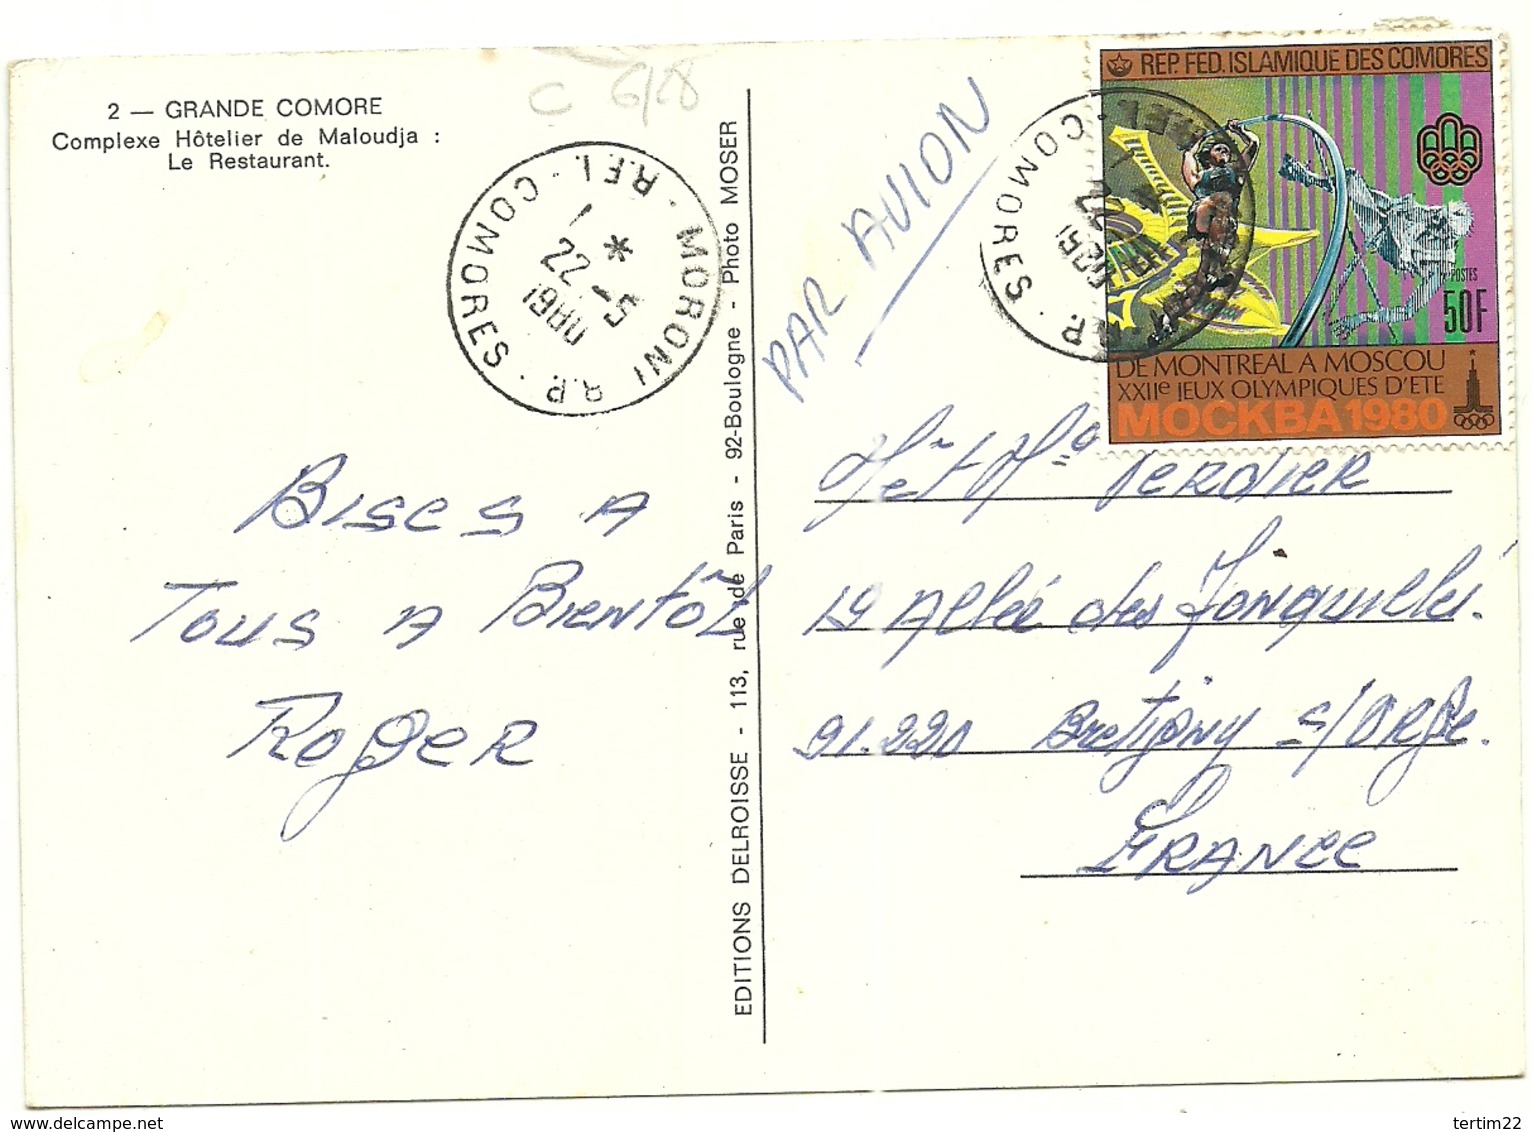 2 — GRANDE COMORE
Complexe Hôtelier de Maloudja :
Le Restaurant.
C 6/28
MORONI R.P. · COMORES · R.F.I.
22 - 5
EDITIONS DELROISSE - 113, rue de Paris - 92-Boulogne - Photo MOSER
PAR AVION
REP. FED. ISLAMIQUE DES COMORES
POSTES
50F
DE MONTREAL A MOSCOU
XXIIe JEUX OLYMPIQUES D'ETE
MOCKBA 1980
COMORES
Bises A
Tous A Bientôt
Roger
Mr et Me Verdier
19 Allée des Jonquilles.
91.220 Bretigny s/Orge.
France
www.delcampe.net
tertim22